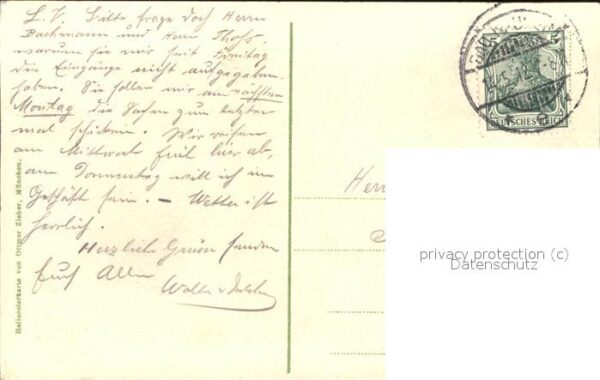 L. V. Bitte frage doch Herrn
Bachmann und Herrn Thoss,
warum sie mir seit Freitag
die Eingänge nicht aufgegeben
haben. Sie sollen mir am nächsten
Montag die Sachen zum letzten
mal schicken. Wir reisen
am Mittwoch früh hier ab,
am Donnerstag will ich im
Geschäft sein. – Wetter ist
herrlich.
Herzliche Grüsse senden
Euch Allen
Walter
Heliocolorkarte von Ottmar Zieher, München.
5
DEUTSCHES REICH
Herrn
privacy protection (c)
Datenschutz